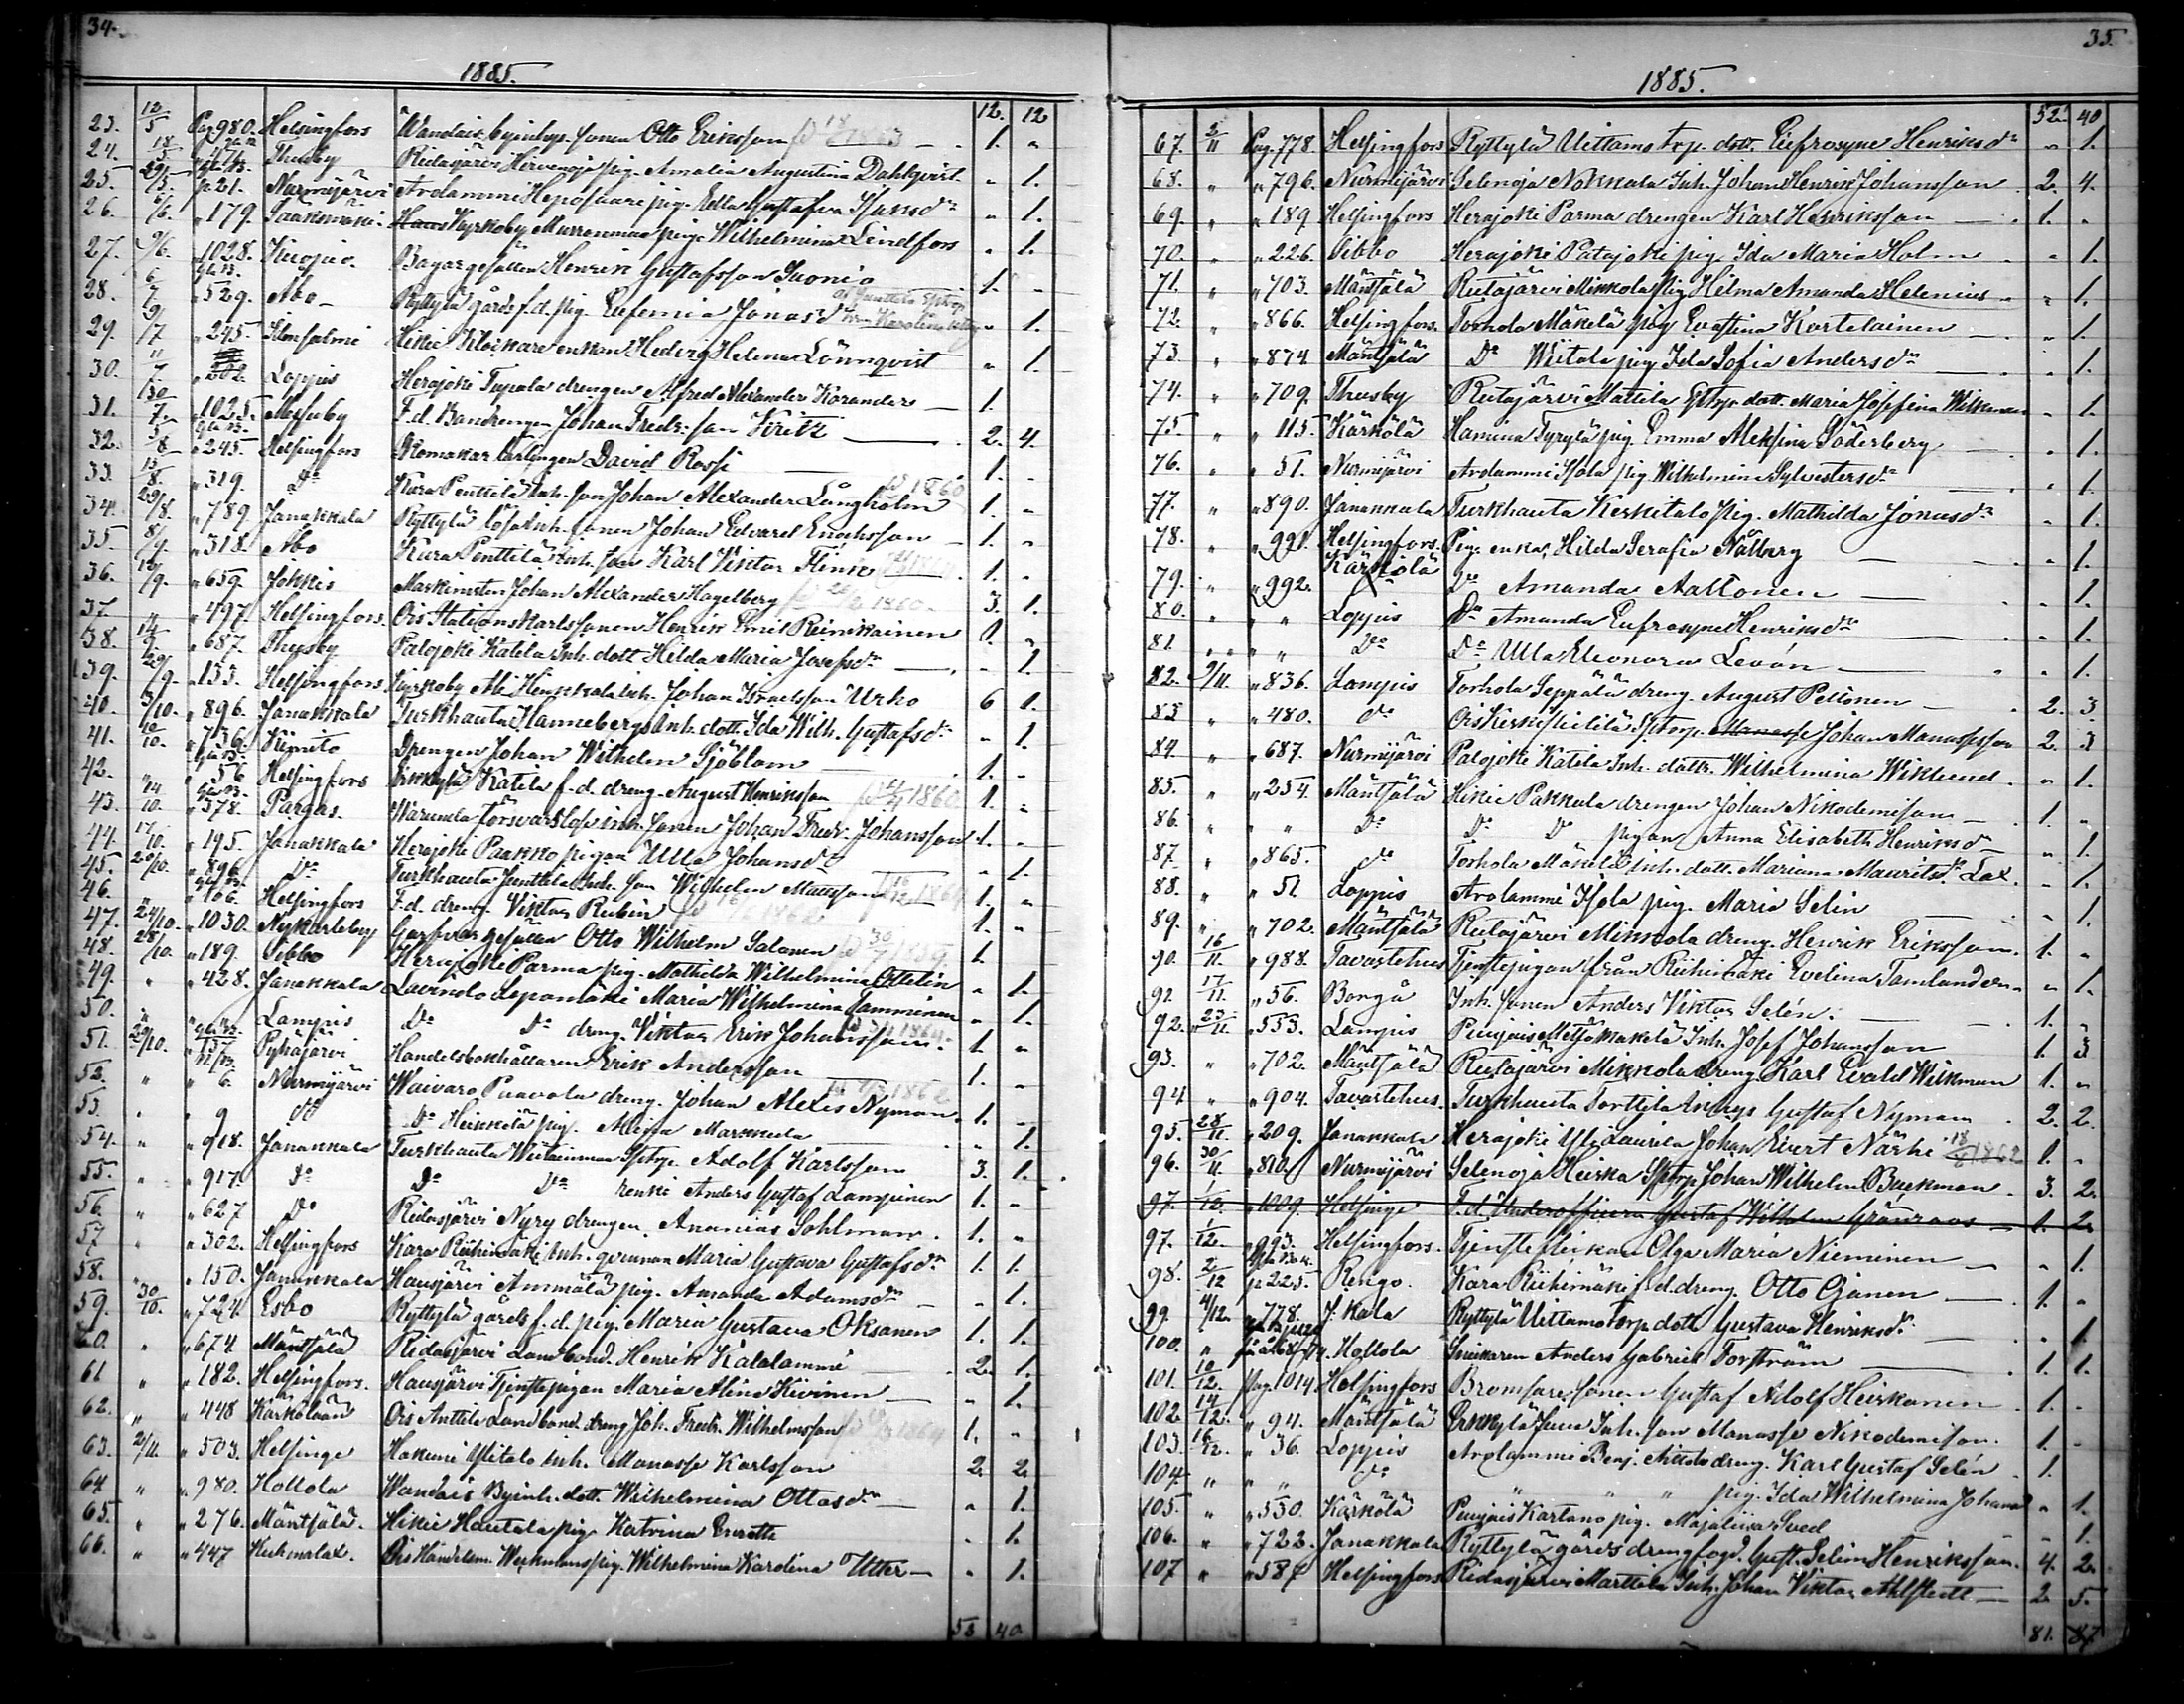 34.
1885.
12. 12
23. 12/5 Pag 980. Helsingfors Wandais byinhys. sonen Otto Eriksson 1863 1. "
24. 18/5 Thusby Ridasjärvi Hirvenoja pig. Amalia Augustina Dahlqvist " 1.
25. 29/5 p 21. Nurmijärvi Arolammi Heposuari pig. Ulla Gustafva " 1.
26. 6/6. " 179. Sääksmäki Kyrkoby Murronmaa pig. Wilhelmina Lindfors " 1.
27. 9/6. " 1028. Kuopio. Bagargesällen Henrik Gustafsson Suonio 1. "
28. 6/7 " 529. Åbo Ryttylä gårds f.d. pig. Eufemia Jonasdr " 1.
29. 9/7 " 245. Idensalmi Hikiä Klockare enkan Hedvig Helena Lönnqvist " 1.
30. 11/7. " 202. Loppis Herajoki Tupala drengen Alfred Alexander Korander 1.
31. 30/7. " 1025. Messuby F.d. Bandrengen Johan Fredr:son Kritz 2. 4.
32. 5/8 " 245. Helsingfors Skomakar lärlingen David Rossi 1. "
33. 15/8. " 319. Do Kara Penttilä Inh. son Johan Alexander Långholm 1860 1. "
34. 29/8. " 789. Janakkala Ryttylä lösa Inh. sonen Johan Edvard Enochsson 1. "
35 8/9. " 318. Åbo Kara Penttilä Inh. son Karl Viktor Flink 1. "
36. 12/9. " 659. Jokkis Maskinisten Johan Alexander Hagelberg 1860. 3. 1.
37. " " 497. Helsingfors. Ois Stationskarlssonen Henrik Emil Reinikainen 1. "
38. 14/9 " 687. Thusby Palojoki Katila Inh. dott Hilda Maria Josefsdr " 1.
39. 29/9. " 133. Helsingfors Kyrkoby Ali Heikkala inh. Johan Israelsson Urho 6 1.
40. 3/10. " 896. Janakkala Turkhauta Hanneberg Inh. dott. Ida Wilh. Gustafsdr " 1.
41. 10/10. " 736. Kimito Drengen Johan Wilhelm Sjöblom 1. "
42. " " 56 Helsingfors Erkkylä Katila f.d. dreng. August Henriksson 1860 1. "
43. 14/10. " 378. Pargas. Warunta Torsvarslof inh. sonen Johan Fredr. Johansson 1. "
44. 17/10. " 195. Janakkala Herajoki Paakko pigan Ulla Johansdr " 1.
45. 20/10. " 896 Do Turkhauta Junttila Inh. son Wilhelm Mattsson 1864 1. "
46. " " 106. Helsingfors F.d. dreng. Viktor Rubin 1862 1. "
47. 24/10. " 1030. Nykarleby Garfvargesällen Otto Wilhelm Salonen 1859. 1.
48. 28/10. " 189. Sibbo Herajoki Parma pig. Mathilda Wilhelmina Ottelin " 1.
49. " " 428. Janakkala Lavinto Lepomäki Maria Wilhelmina Tamminen " 1.
50. " " " Lampis Do Do dreng. Viktor Erik Johansson 1864. 1. "
51. 29/10. " 137 Pyhäjärvi Handelsbokhållaren Erik Andersson 1. "
52. " " 6. Nurmijärvi Waivaro Paavola dreng. Johan Alexis Nyman 1862 1. "
53. " " 9 do Do Heikkilä pig. Miina Markkula " 1.
54. " " 918. Janakkala Turkhauta Weitaimaa Sptorp. Adolf Karlsson 3. 1.
55. " " 917. Do Do Do renki Anders Gustaf Lampinen 1. "
56. " " 627 Do Ridasjärvi Nyry drengen Ananias Sohlman 1. "
57 " " 302. Helsingfors Kara Riihimäki Inh. qvinnan Maria Gustava Gustafsdr 1. 1.
58. " " 150. Janakkala Hausjärvi Ammälä pig. Amanda Adamsdr " 1.
59. 30/10. " 724. Esbo Ryttylä gårds f.d. pig. Maria Gustava Oksanen 1. 1.
60. " " 674 Mäntsälä Ridasjärvi Landbond. Henrik Kalalammi 2. 1.
61 " " 182. Helsingfors. Hausjärvi Tjenstepigan Maria Alina Kivinen " 1.
62. " " 448 Kärkölään Ois Anttila Landbond. dreng Joh. Fredr. Wilhelmsson 1864 1. "
63. 2/11. " 503. Helsinge Hakumi Ylitalo Inh. Manasse Karlsson 2. 2.
64 " " 980. Hollola Wandais Byinh. dott. Wilhelmina Ottosdr " 1.
65. " " 276. Mäntsälä. Hikiä Hautala pig Katrina Errotti " 1.
66. " " 447 Kuhmalax. Ois Handelsm. Weckmans pig. Wilhelmina Karolina Utter " 1.
53 40
35.
1885.
52. 40
67. 2/11 Pag. 778 Helsingfors Ryttylä Uittamo torp. dott. Eufrosyne Henriksdr " 1.
68. " " 796. Nurmijärvi Selenoja Nokkala Inh. Johan Henrik Johansson 2. 4.
69. " " 189. Helsingfors Herajoki Parma drengen Karl Henriksson 1. "
70. " " 226. Sibbo Herajoki Patajoki pig. Ida Maria Holm " 1.
71. " " 703. Mäntsälä Ridasjärvi Mikkola pig Hilma Amanda Helenius " 1.
72. " " 866. Helsingfors. Torhola Mäkelä pig Evastina Kortelainen " 1.
73. " " 874 Mäntsälä Do Wiitala pig. Ida Sofia Andersdr " 1.
74. " " 709. Thusby Ridasjärvi Mattila Sptorp dott. Maria Josefina Wikman " 1.
75 " " 115. Kärkölä Hamina Syrylä pig. Emma Alexina Söderberg " 1.
76. " " 51. Nurmijärvi Arolammi Isola pig. Wilhelmina Sylvestersdr " 1.
77. " " 890. Janakkala Turkhauta Keskitalo pig. Mathilda Jonasdr " 1.
78. " " 991. Helsingfors. Pig. enka, Hilda Serafia Nålberg " 1.
79. " " 992. Kärkölä Do Amanda Aaltonen " 1.
80. " " " Loppis Do Amanda Eufrosyne Henriksdr " 1.
81. " " " Do Do Ulla Eleonora Levón " 1.
82. 9/11. " 836. Lampis Torhola Seppälä dreng. August Peltonen 2. 3
83 " " 480. do Ois Keskikiitilä Sptorp. Johan Manasseson 2. 3
84. " " 687. Nurmijärvi Palojoki Katila Inh. dottr. Wilhelmina Wiklund " 1.
85. " " 254. Mäntsälä Hikiä Pakkala drengen Johan Nikodemison 1. "
86. " " " Do Do Do pigan Anna Elisabeth Henriksdr " 1.
87. " " 865. do Torhola Mäkelä Inh. dott. Mariana Mauritsdr Lax " 1.
88. " " 51 Loppis Arolammi Isola pig. Maria Selin " 1.
89. " " 702. Mäntsälä Ridasjärvi Mikkola dreng. Henrik Eriksson. 1. "
90. 16/11. " 988. Tavastehus Tjenstepigan från Riihimäki Evelina Tamlander " 1.
92 17/11. " 56. Borgå Inh. sonen Anders Viktor Selén. 1. "
92. 23/11. " 553. Lampis Puujais Metsämäkelä Inh. Josef Johansson 1. 3
93. " " 702. Mäntsälä Ridasjärvi Mikkola dreng. Karl Evald Wikman 1. "
94 " " 904. Tavastehus. Turkhauta Torttila Inhys Gustaf Nyman 2. 2.
95. 28/11. " 209. Janakkala Herajoki Yli Laurila Johan Evert Närhi 1862 1. "
96. 30/11. " 810. Nurmijärvi Selenoja Heiska Sptorp Johan Wilhelm Backman 3. 2.
97. 1/12. " 1009. Helsinge F.d. Underofficern Gustaf Wilhelm Grönroos 1. 2.
97. 1/12. " 993. Helsingfors. Tjensteflickan Olga Maria Nieminen " 1.
98. 2/12 p 225. Rengo. Kara Riihimäki f.d. dreng. Otto Ojanen 1. "
99 4/12. " 778. J.kala Ryttylä Uittamo Torp. dott Gustava Henriksdr " 1
100. " Hollola Snickaren Anders Gabriel Torström 1. 1.
101. 10/12. Pag. 1014 Helsingfors Bromsaresonen Gustaf Adolf Heiskanen 1. "
102 14/12. " 94. Mäntsälä Erkkylä Jussi Inh. son Manasse Nikodemison. 1. "
103. 16/12. " 36. Loppis Arolammi Benj. Anttila dreng. Karl Gustaf Selén 1.
104 " " " do " " " pig. Ida Wilhelmina Johansdr " 1.
105. " " 530. Kärkölä Puujais Kartano pig. Majaliisa Sved " 1.
106. " " 722. Janakkala Ryttylä gårds drengfogd. Gust. Selim Henriksson. 4. 2.
107 " " 587 Helsingfors Ridasjärvi Marttila Inh. Johan Viktor Ahlstedt 2. 5.
81. 87